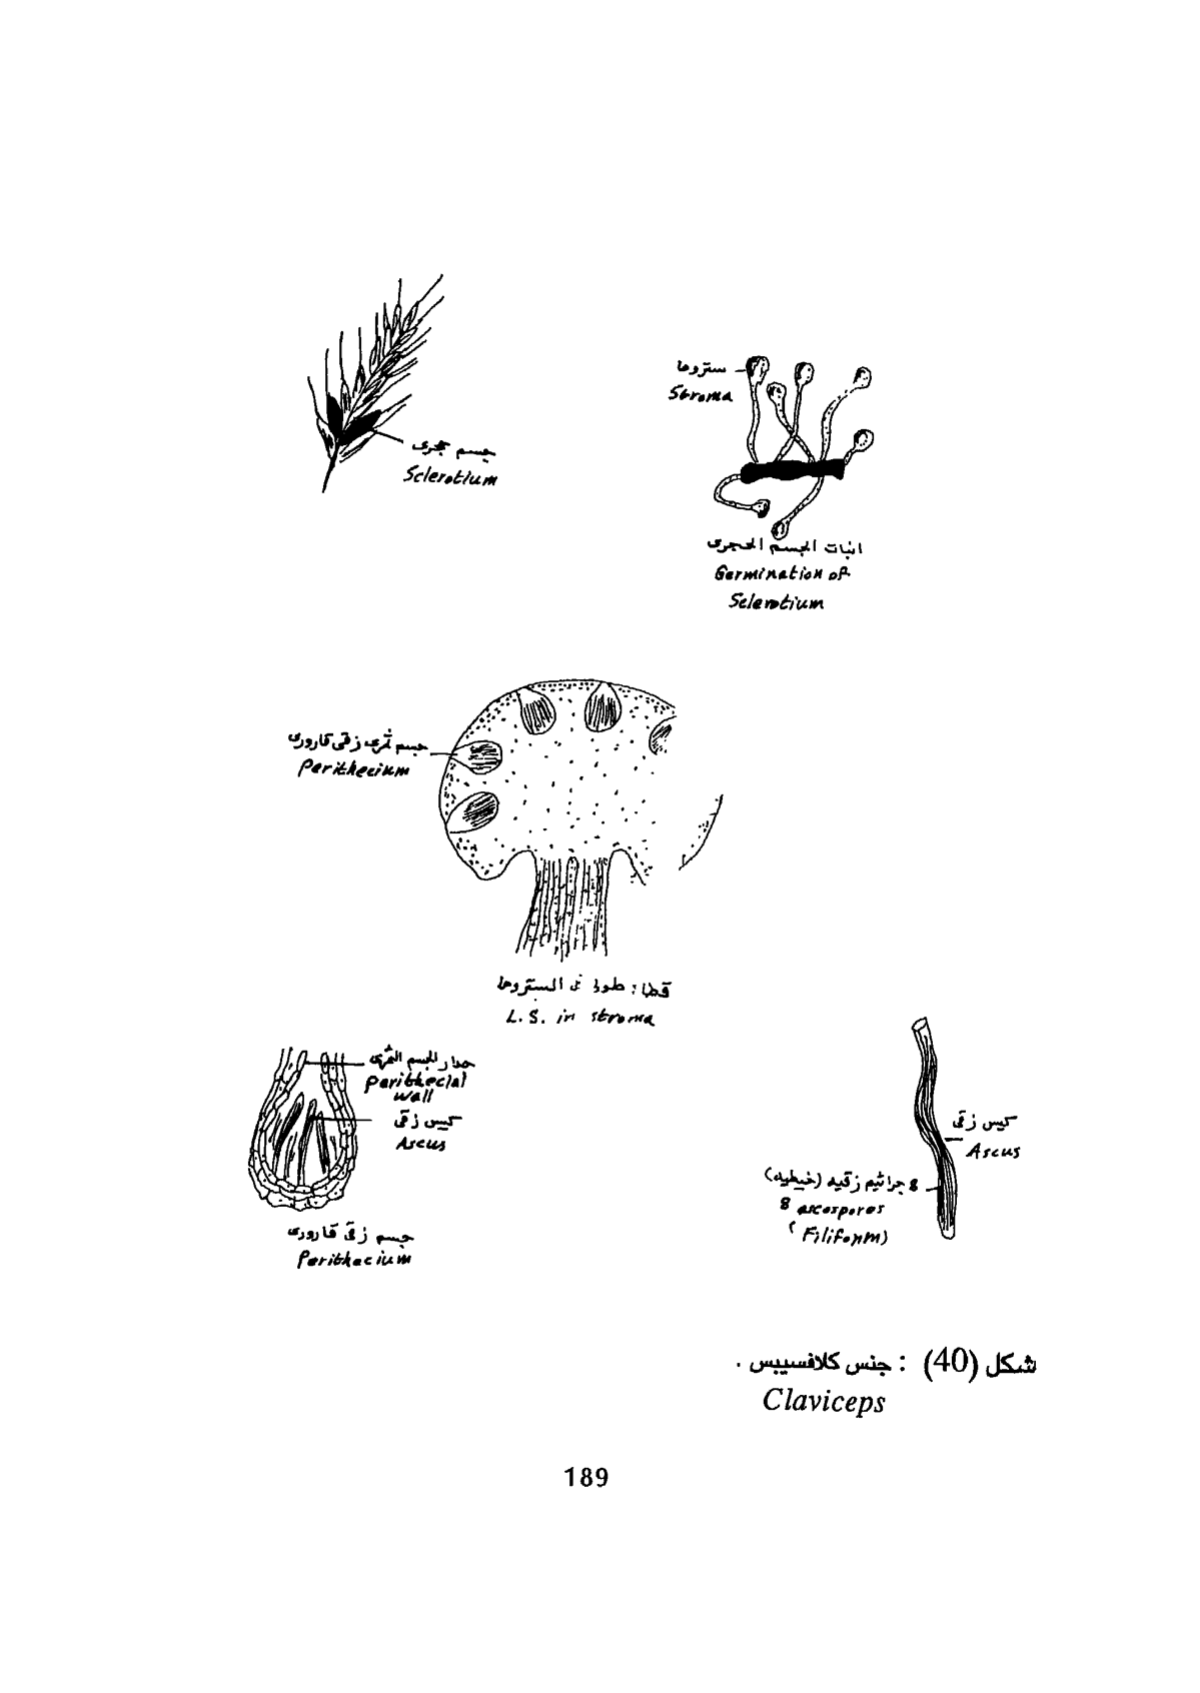 جسم حجرى
Sclerotium
ستروما
Stroma
انبات الجسم الحجرى
Germination of
Sclerotium
جسم ثمرى زقى قارورى
Perithecium
قطاع طولى فى الستروما
L.S. in stroma
جدار الجسم الثمرى
Perithecial
wall
كيس زقى
Ascus
جسم زقى قارورى
Perithecium
كيس زقى
Ascus
8 جراثيم زقيه (خيطيه)
8 ascospores
(Filiform)
شكل (40) : جنس كلافسيبس .
Claviceps
189